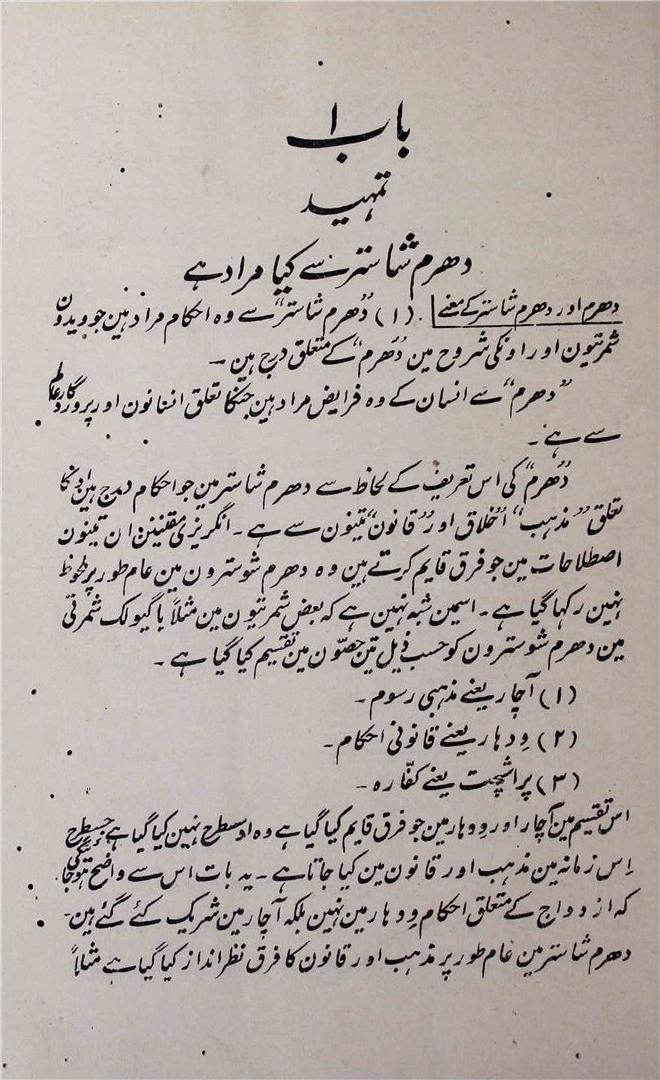 باب ۱
تمہید
دھرم شاستر سے کیا مراد ہے
دھرم اور دھرم شاستر کے معنے (۱) "دھرم شاستر" سے وہ احکام مراد ہین جو ویدون
شمرتیون اور اونکی شروح مین "دھرم" کے متعلق درج ہین ۔
"دھرم" سے انسان کے وہ فرایض مراد ہین جنکا تعلق انسانون اور پروردگار عالم
سے ہے ۔
"دھرم" کی اس تعریف کے لحاظ سے دھرم شاستر مین جو احکام درج ہین اونکا
تعلق "مذہب" "اخلاق اور "قانون" تینون سے ہے ۔ انگریزی مقننین ان تینون
اصطلاحات مین جو فرق قایم کرتے ہین وہ دھرم شوسترون مین عام طور پر ملحوظ
نہین رکہا گیا ہے ۔ اسمین شبہ نہین ہے کہ بعض شمرتیون مین مثلاً یاگیولک شمرتی
مین دھرم شوسترون کو حسب ذیل تین حصّون مین تقسیم کیا گیا ہے ۔
(۱) آچار یعنے مذہبی رسوم ۔
(۲) وِدہار یعنے قانونی احکام ۔
(۳) پراشچت یعنے کفّارہ ۔
اس تقسیم مین آچار اور وِوہار مین جو فرق قایم کیا گیا ہے وہ اوسطرح نہین کیا گیا ہے جسطرح
اِس زمانہ مین مذہب اور قانون مین کیا جاتا ہے ۔ یہ بات اس سے واضح ہو جائیگی
کہ ازدواج کے متعلق احکام وِوہار مین نہین بلکہ آچار مین شریک کئے گئے ہین ۔
دھرم شاستر مین عام طور پر مذہب اور قانون کا فرق نظر انداز کیا گیا ہے مثلاً